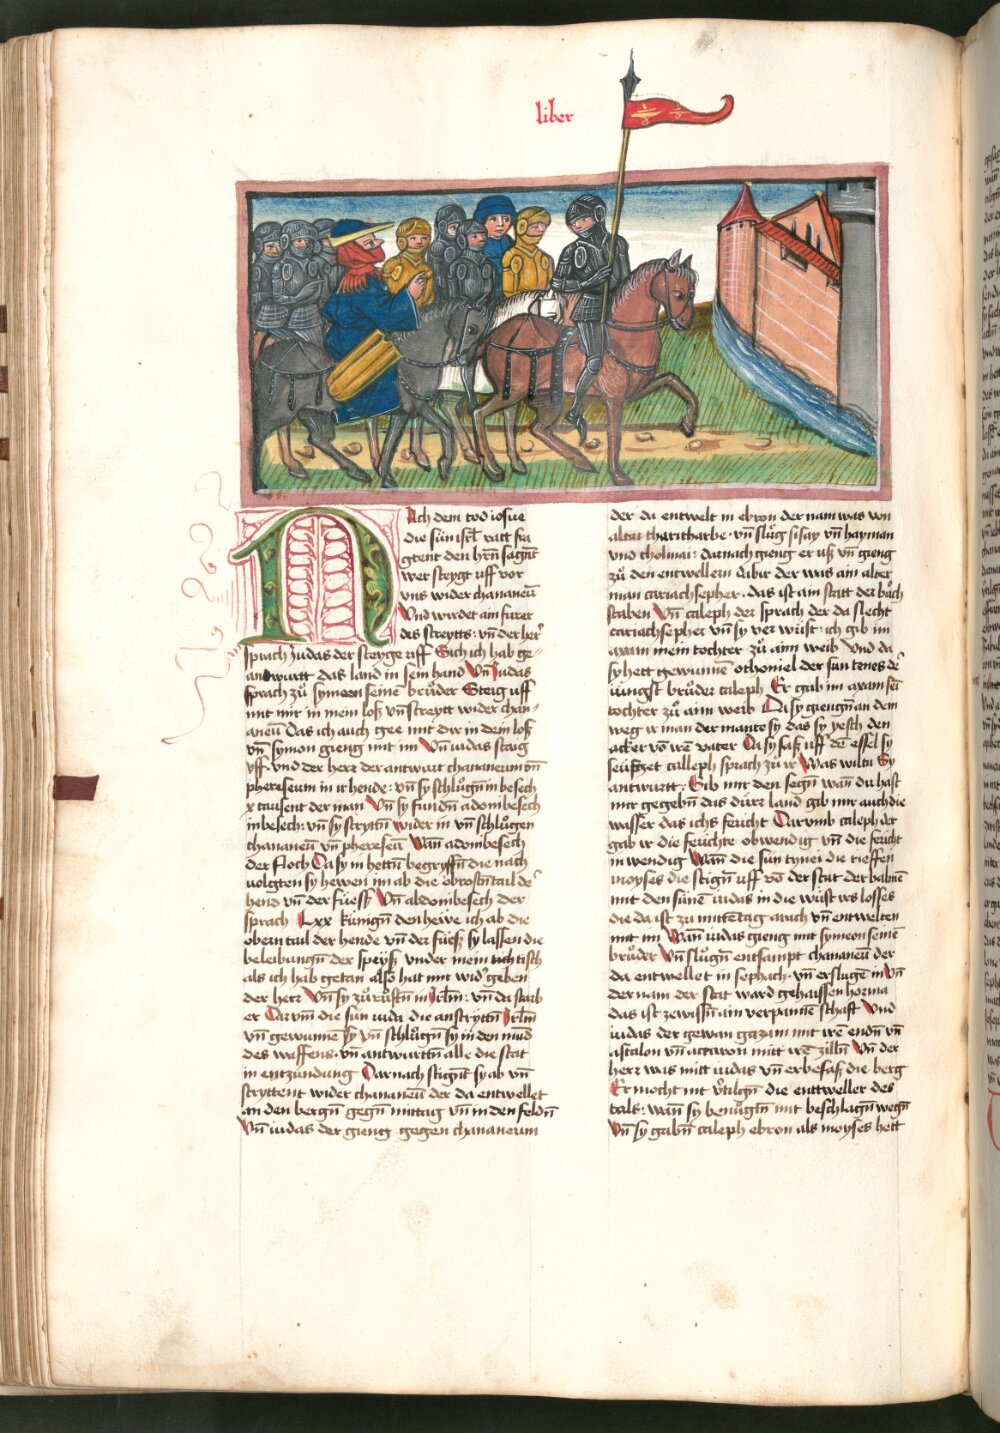 liber
Nach dem tod iosue
die sün isrl̄ ratt fra
gtent den hrñ sagñt
wer steygt uff vor
vns wider chananeū
Vnd wirdet ain fürer
des streytts · vn̄ der her˜
sprach Judas der steyge uff Sich ich hab ge=
antwurtt das land in sein hand Vn̄ Judas
sprach zů symeon seinē brůder Steig uff
mit mir in mein loß vn̄ streytt wider chan=
aneū Das ich auch gee mit dir in dem loß
vn̄ symon gieng mit im Vn̄ iudas staig
vff · vnd der herr der antwurt chananeum vn̄
phereseum in ir hende · vn̄ sy schlůgñ in besech
x tausent der man Vn̄ sy fundñ adombesech
in besech · vn̄ sy strytñ wider in vn̄ schlůgen
chananeū vn̄ phereseū Wan̄ adombesech
der floch Da sy in hettñ begryffñ die nach
volgten sy hewen im ab die obrostñ tail de˜
hend vn̄ der füeß Vn̄ abdombesech der
sprach Lxx künigñ den hewe ich ab die
obern tail der hende vn̄ der füeß sy lassen die
beleibungñ der speyß vnder mein tisch
als ich hab getan also hat mir wid˜ geben
der herr Vn̄ sy zů růstñ in Jrl̄m · vn̄ da starb
er Darum̄ die sün iuda die anstryttñ Jrl̄m
vn̄ gewunnē sy vn̄ schlůgñ sy in den mūd
des waffens · vn̄ antwurttñ alle die stat
in entzündung Darnach stignt sy ab vn̄
stryttent wider chananeū der da entwellet
an den bergñ gegñ mittag vn̄ in den feldñ
Vn̄ iudas der gieng gegen chananeum
der da entwelt in ebron der nam was von
alter thariatharbe · vn̄ slůg sisay vn̄ hayman
vnd tholmai : darnach gieng er uß vn̄ gieng
zů den entwellern dibir der was am alter
man cariachsepher · das ist ain statt der bůch
staben Vn̄ caleph der sprach der da slecht
cariachsepher vn̄ sy ver wüst · ich gib im
axam mein tochter zů ainn weib Vnd da
sy hett gewunnē othoniel der sun tenes de˜
iüngst brůder caleph Er gab im axam sei
tochter zů ainn weib Da sy giengñ an dem
weg ir man der mante sy das sy yesch den
acker vō irē vater Da sy saß uff dē essel sy
seüfftzet calleph sprach zů ir Was wiltu Sy
antwurtt · Gib mir den segñ wan̄ du hast
mir gegebñ das dürr land gib mir auch die
wasser das ichs feücht Darumb caleph der
gab ir die feüchte obwendig vn̄ die feücht
inwendig Wan̄ die sün cynei die rieffen
moyses die stigñ uff vō der stat der balmē
mit den sünē iudas in die wüst irs losses
die da ist zu mittētag arach vn̄ entwelten
mit im Wan̄ iudas gieng mit symeon seinē
brůder Vn̄ slůgñ entsampt chananeū der
da entwellet in sephach · vn̄ erslugē in Vn̄
der nam der stat ward gehaissen horma
das ist zewissñ ain verpannē schaft Vnd
iudas der gewan gazam mit irē endñ vn̄
ascalon vn̄ accaron mitt irē zilln̄ Vn̄ der
herr was mitt iudas vn̄ er besaß die berg
Er mocht nit vtilgñ die enttweller des
tals : wan̄ sy benůgtñ mit beschlagñ wegñ
Vn̄ sy gabñ caleph ebron als moyses hett